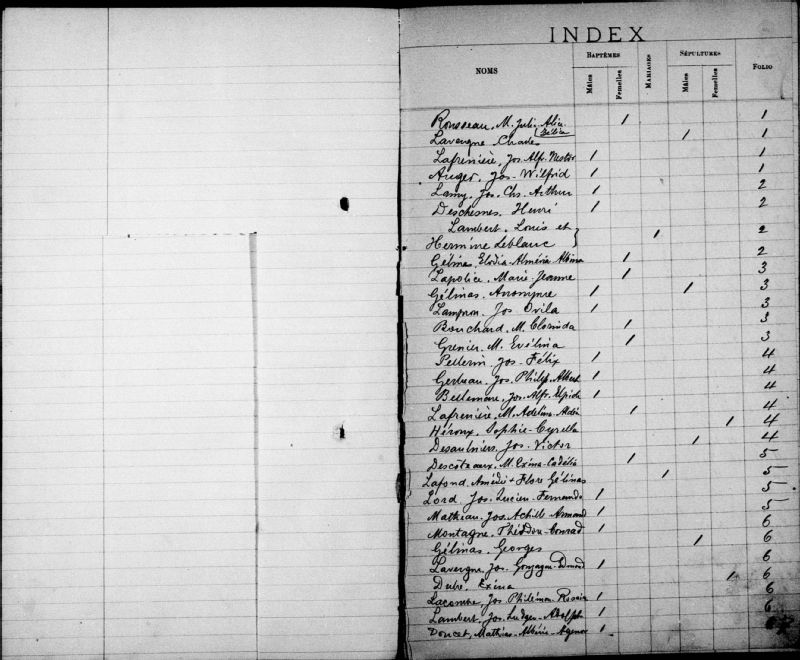 INDEX
NOMS BAPTÊMES MARIAGES SÉPULTURES FOLIO
Mâles Femelles Mâles Femelles
Rousseau, M. Julie Alice 1 1
Lavergne, Charles 1 1
Lafrenière, Jos. Alf. Nestor 1 1
Auger, Jos. Wilfrid 1 1
Lamy, Jos. Chs. Arthur 1 2
Deschesnes, Henri 1 2
Lambert, Louis et
Hermine Leblanc 1 2
Gélinas, Elodia Alméria Albina 1 2
Lapolice, Marie Jeanne 1 3
Gélinas, Anonyme 1 1 3
Lampron, Jos Ovila 1 3
Bouchard, M. Clorinda 1 3
Grenier, M. Evélina 1 3
Pellerin, Jos. Félix 1 4
Jos. Philip. Albert 1 4
Bellemare, Jos. Alfr. Elpide 1 4
Lafrenière, M. Adelina 1 4
Héroux, Sophie 1 4
Desaulniers, Jos. Victor 1 4
Descoteaux, M. Exina 1 5
Lafond, Amédée + Flore Gélinas 1 5
Lord, Jos. Lucien Fernando 1 5
Matheau, Jos. Achille Armand 1 5
Montagne, Théodore Conrad 1 6
Gélinas, Georges 1 6
Lavergne, Jos. Gonzague 1 6
Dubé, Exina 1 6
Lacombe, Jos Philémon Rosaire 1 6
Lambert, Jos. Ludger Adolph 1 6
Doucet, Mathias Albéric Agenor 1